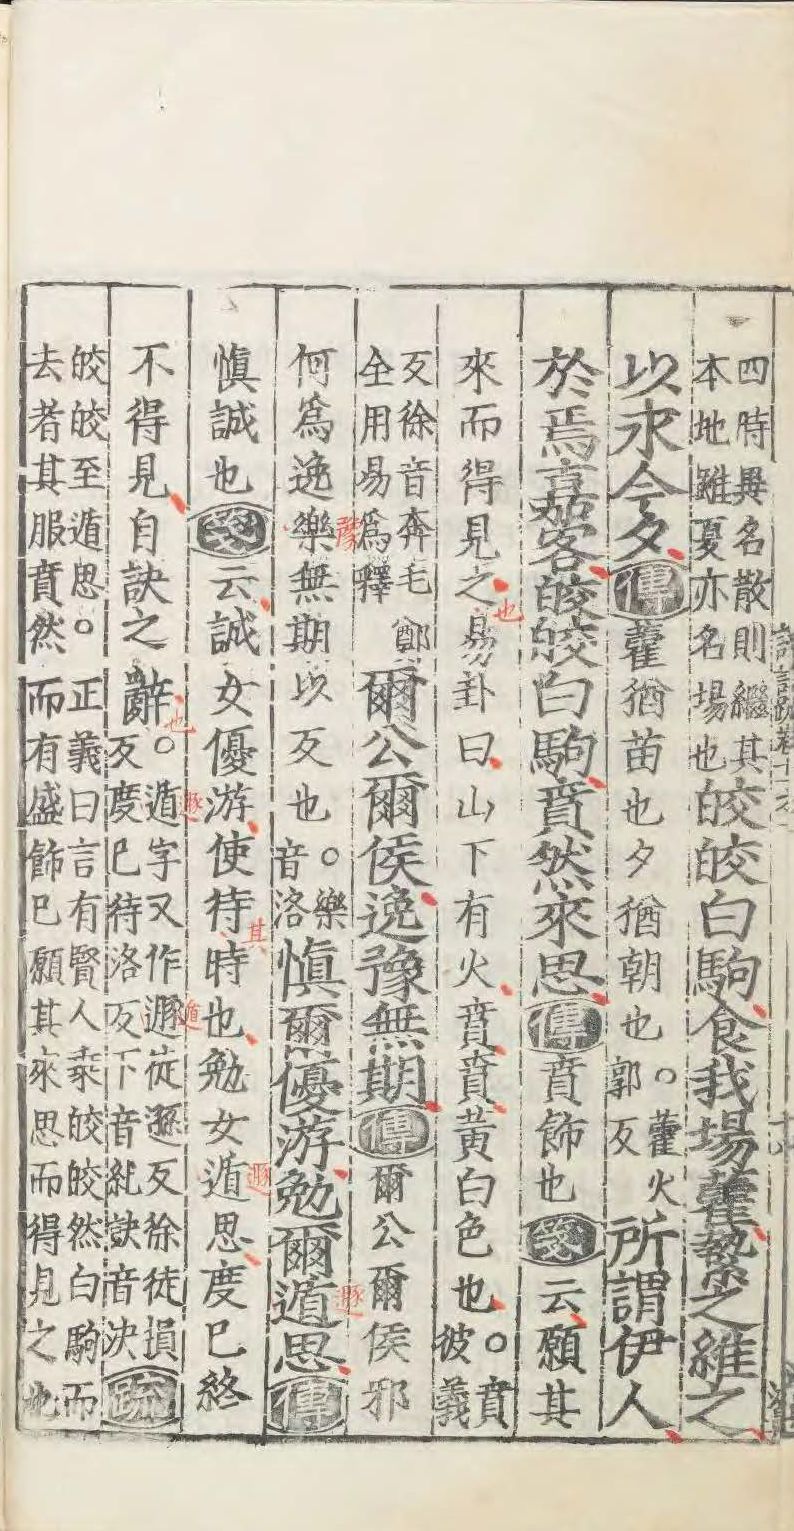 四時異名散則繼其
本地雖夏亦名場也
皎皎白駒食我場藿縶之維之
以永今夕傳藿猶苗也夕猶朝也○藿火郭反所謂伊人
於焉嘉客皎皎白駒賁然來思傳賁飾也箋云願其
來而得見之易卦曰山下有火賁賁黃白色也○賁彼義
也
反徐音奔毛鄭
全用易為釋
爾公爾侯逸豫無期傳爾公爾侯邪
何爲逸樂無期以反也○樂音洛慎爾優游勉爾遁思傳
豫
遯
慎誠也箋云誠女優游使待時也勉女遁思度巳終
其
遯
不得見自訣之辭
也
○遁字又作遯徒遜反徐徒損
反度巳待洛反下音紀訣音決
疏
遯
遁
皎皎至遁思○正義曰言有賢人乘皎皎然白駒而
去者其服賁然而有盛飾巳願其來思而得見之也